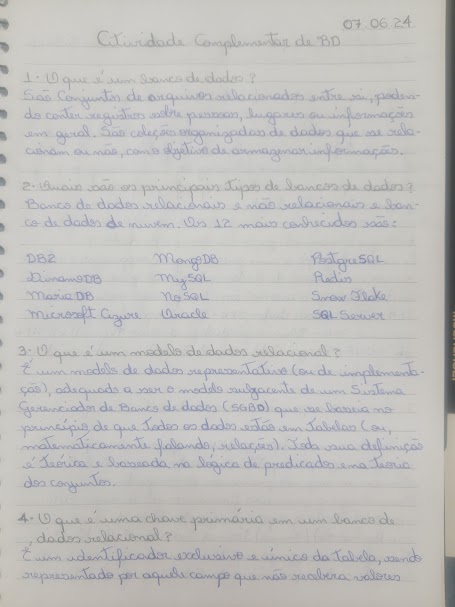 07.06.24
Atividade Complementar de BD
1- O que é um banco de dados?
São Conjuntos de arquivos relacionados entre si, poden-
do conter registros sobre pessoas, lugares ou informações
em geral. São coleções organizadas de dados que se rela-
cionam ou não, com o objetivo de armazenar informação.
2- Quais são os principais tipos de bancos de dados?
Banco de dados relacionais e não relacionais e ban-
co de dados de nuvem. Os 12 mais conhecidos são:
DB2 MongoDB PostgreSQL
DinamoDB MySQL Redis
MariaDB NoSQL Snow Flake
Microsoft Azure Oracle SQL Server
3- O que é um modelo de dados relacional?
É um modelo de dados representativo (ou de implementa-
ção), adequado a ser o modelo subjacente de um Sistema
Gerenciador de Banco de dados (SGBD) que se baseia no
princípio de que todos os dados estão em tabelas (ou,
matematicamente falando, relações). Toda sua definição
é teórica e baseada na lógica de predicados e na teoria
dos conjuntos.
4- O que é uma chave primária em um banco de
dados relacional?
É um identificador exclusivo e único da tabela, sendo
representado por aquele campo que não receberá valores